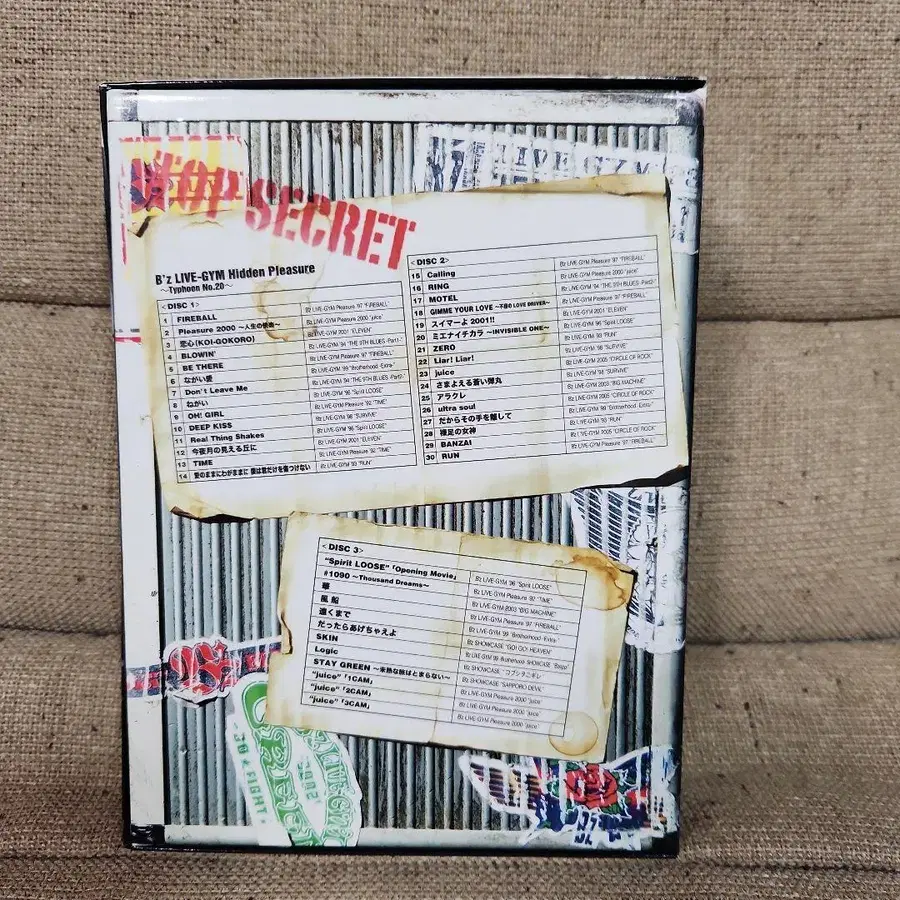 TOP SECRET
LIVE-GYM
B'z LIVE-GYM Hidden Pleasure
~Typhoon No.20~
<DISC 1>
1 FIREBALL B'z LIVE-GYM Pleasure '97 "FIREBALL"
2 Pleasure 2000 ~人生の快楽~ B'z LIVE-GYM Pleasure 2000 "juice"
3 恋心(KOI-GOKORO) B'z LIVE-GYM 2001 "ELEVEN"
4 BLOWIN' B'z LIVE-GYM '94 "THE 9TH BLUES -Part2-"
5 BE THERE B'z LIVE-GYM Pleasure '97 "FIREBALL"
6 ながい愛 B'z LIVE-GYM '99 "Brotherhood -Extra-"
7 Don't Leave Me B'z LIVE-GYM '94 "THE 9TH BLUES -Part2-"
8 ねがい B'z LIVE-GYM '96 "Spirit LOOSE"
9 OH! GIRL B'z LIVE-GYM Pleasure '92 "TIME"
10 DEEP KISS B'z LIVE-GYM '98 "SURVIVE"
11 Real Thing Shakes B'z LIVE-GYM '96 "Spirit LOOSE"
12 今夜月の見える丘に B'z LIVE-GYM 2001 "ELEVEN"
13 TIME B'z LIVE-GYM Pleasure '92 "TIME"
14 愛のままにわがままに 僕は君だけを傷つけない B'z LIVE-GYM '93 "RUN"
<DISC 2>
15 Calling B'z LIVE-GYM Pleasure '97 "FIREBALL"
16 RING B'z LIVE-GYM Pleasure 2000 "juice"
17 MOTEL B'z LIVE-GYM '94 "THE 9TH BLUES -Part2-"
18 GIMME YOUR LOVE ~不屈のLOVE DRIVER~ B'z LIVE-GYM Pleasure '97 "FIREBALL"
19 スイマーよ 2001!! B'z LIVE-GYM 2001 "ELEVEN"
20 ミエナイチカラ ~INVISIBLE ONE~ B'z LIVE-GYM '96 "Spirit LOOSE"
21 ZERO B'z LIVE-GYM '93 "RUN"
22 Liar! Liar! B'z LIVE-GYM '98 "SURVIVE"
23 juice B'z LIVE-GYM 2005 "CIRCLE OF ROCK"
24 さまよえる蒼い弾丸 B'z LIVE-GYM '98 "SURVIVE"
25 アラクレ B'z LIVE-GYM 2003 "BIG MACHINE"
26 ultra soul B'z LIVE-GYM 2005 "CIRCLE OF ROCK"
27 だからその手を離して B'z LIVE-GYM '99 "Brotherhood -Extra-"
28 裸足の女神 B'z LIVE-GYM '93 "RUN"
29 BANZAI B'z LIVE-GYM 2005 "CIRCLE OF ROCK"
30 RUN B'z LIVE-GYM Pleasure '97 "FIREBALL"
<DISC 3>
"Spirit LOOSE"「Opening Movie」 B'z LIVE-GYM '96 "Spirit LOOSE"
#1090 ~Thousand Dreams~ B'z LIVE-GYM Pleasure '92 "TIME"
華 B'z LIVE-GYM 2003 "BIG MACHINE"
風船 B'z LIVE-GYM Pleasure '97 "FIREBALL"
遠くまで B'z LIVE-GYM '99 "Brotherhood -Extra-"
だったらあげちゃえよ B'z SHOWCASE "GO! GO! HEAVEN"
SKIN B'z LIVE-GYM '99 -Brotherhood- SHOWCASE
Logic B'z SHOWCASE "コブシヲニギレ"
STAY GREEN ~未熟な旅はとまらない~ B'z SHOWCASE "SAPPORO DEVIL"
"juice"「1CAM」 B'z LIVE-GYM Pleasure 2000 "juice"
"juice"「2CAM」 B'z LIVE-GYM Pleasure 2000 "juice"
"juice"「3CAM」 B'z LIVE-GYM Pleasure 2000 "juice"